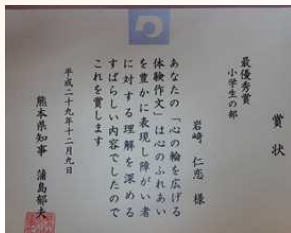 賞状
最優秀賞
小学生の部
岩崎 仁恋 様
あなたの「心の輪を広げる
体験作文」は心のふれあい
を豊かに表現し障がい者
に対する理解を深める
すばらしい内容でしたので
これを賞します
平成二十九年十二月九日
熊本県知事 蒲島郁夫